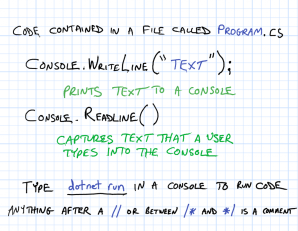 CODE CONTAINED IN A FILE CALLED PROGRAM.CS
CONSOLE.WRITELINE("TEXT");
PRINTS TEXT TO A CONSOLE
CONSOLE.READLINE()
CAPTURES TEXT THAT A USER
TYPES INTO THE CONSOLE
TYPE dotnet run IN A CONSOLE TO RUN CODE
ANYTHING AFTER A // OR BETWEEN /* AND */ IS A COMMENT